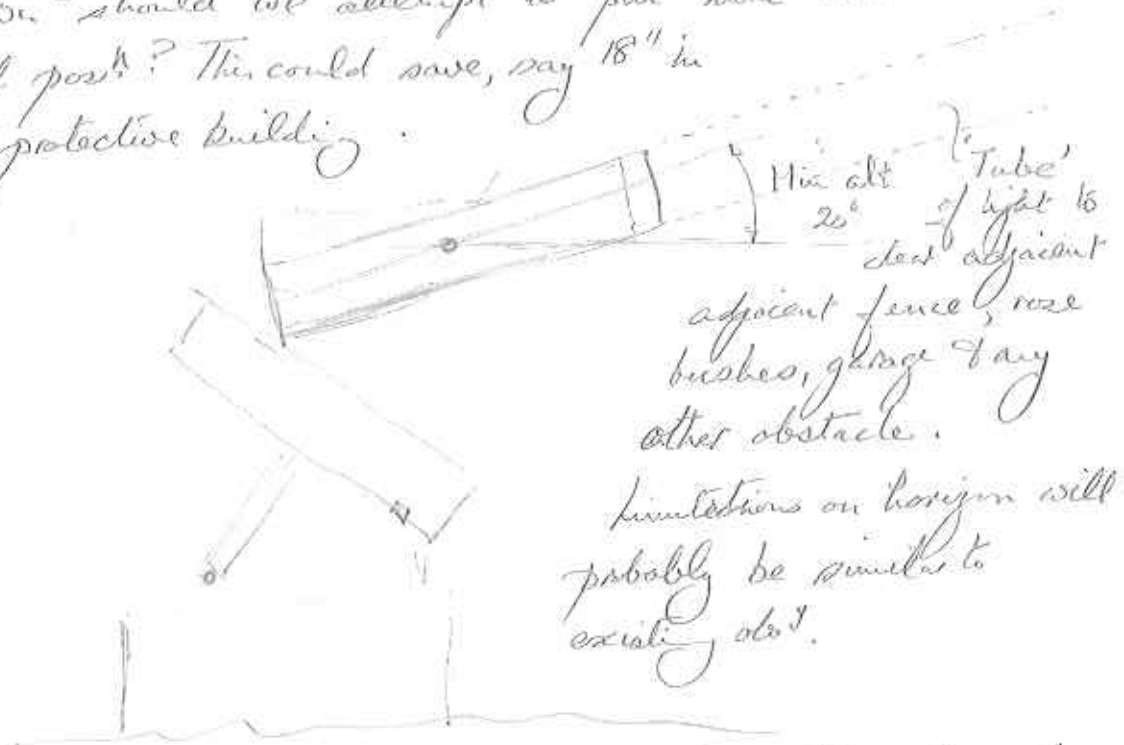 on should we attempt to put
posn? This could save, say 18" in
protective building.
Min alt
20°
'Tube'
of light to
clear adjacent
adjacent fence, rose
bushes, garage & any
other obstacle.
Limitations on horizon will
probably be similar to
existing obsy.